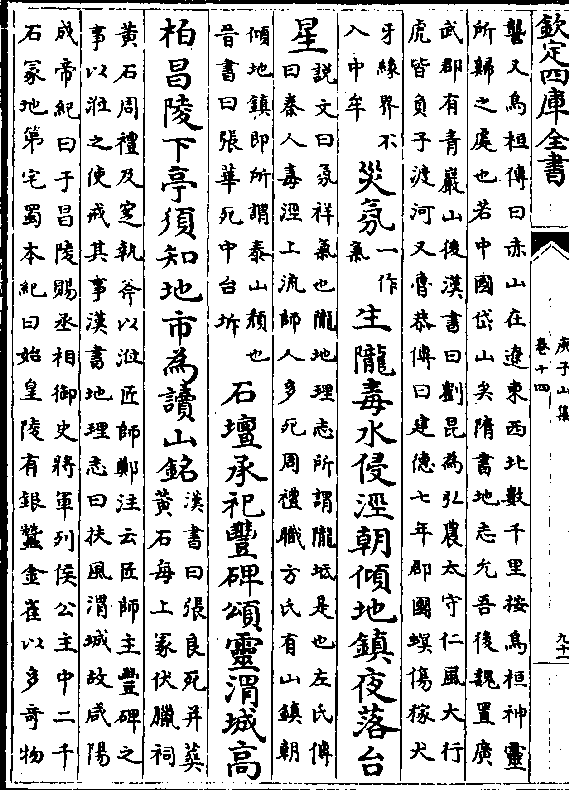 欽定四庫全書
庾子山集
卷十四
又烏桓傳曰赤山在遼東西北數千里按烏桓神靈
所歸之處也若中國岱山矣隋書地志允吾後魏置廣
武郡有青巖山後漢書曰劉昆為弘農太守仁風大行
虎皆負子渡河又魯恭傳曰建德七年郡國螟傷稼犬
牙緣界不
入中牟
災氛一作氣生隴毒水侵涇朝傾地鎮夜落台
星
說文曰氛祥氣也隴地理志所謂隴坻是也左氏傳
曰秦人毒涇上流師人多死周禮職方氏有山鎮朝
傾地鎮即所謂泰山頹也
晉書曰張華死中台坼
石壇承祀豐碑頌靈渭城高
柏昌陵下亭須知地市為讀山銘
漢書曰張良死并葬
黃石每上冢伏臘祠
黃石周禮及窆執斧以涖匠師鄭注云匠師主豐碑之
事以涖之使戒其事漢書地理志曰扶風渭城故咸陽
成帝紀曰于昌陵賜丞相御史將軍列侯公主中二千
石冢地第宅蜀本紀曰始皇陵有銀蠶金雀以多奇物